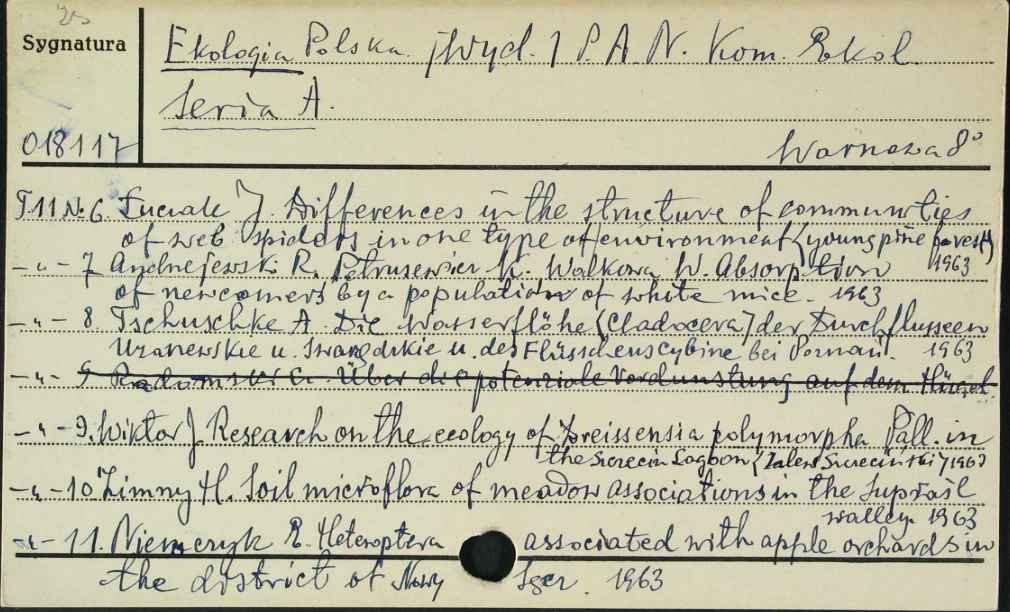 Sygnatura
Ekologia Polska. [Wyd.] P.A.N. Kom. Ekol.
Seria A.
018117
Warszawa 8°
T 11 № 6. Łuczak J. Differences in the structure of communities
of web spiders in one type of environment (young pine forest)
1963
-"- 7 Andrzejewski R. Petrusewicz K. Walkowa W. Absorption
of newcomers by a population of white mice. 1963
-"- 8. Tschuschke A. Die Wasserflöhe (Cladocera) der Durchflusseen
Uzanewskie u. Swarzędzkie u. des Flüsschens Cybine bei Poznań. 1963
-"- 9 Radomski C. Über die potenziale Verdunstung auf dem Hügel
-"- 9. Wiktor J. Research on the ecology of Dreissensia polymorpha Pall. in
the Szczecin Lagoon (Zalew Szczeciński) 1963
-"- 10 Zimny H. Soil microflora of meadow associations in the Supraśl
walley. 1963
-"- 11. Niemczyk E. Heteroptera associated with apple orchards in
the district of Nowy Sącz. 1963